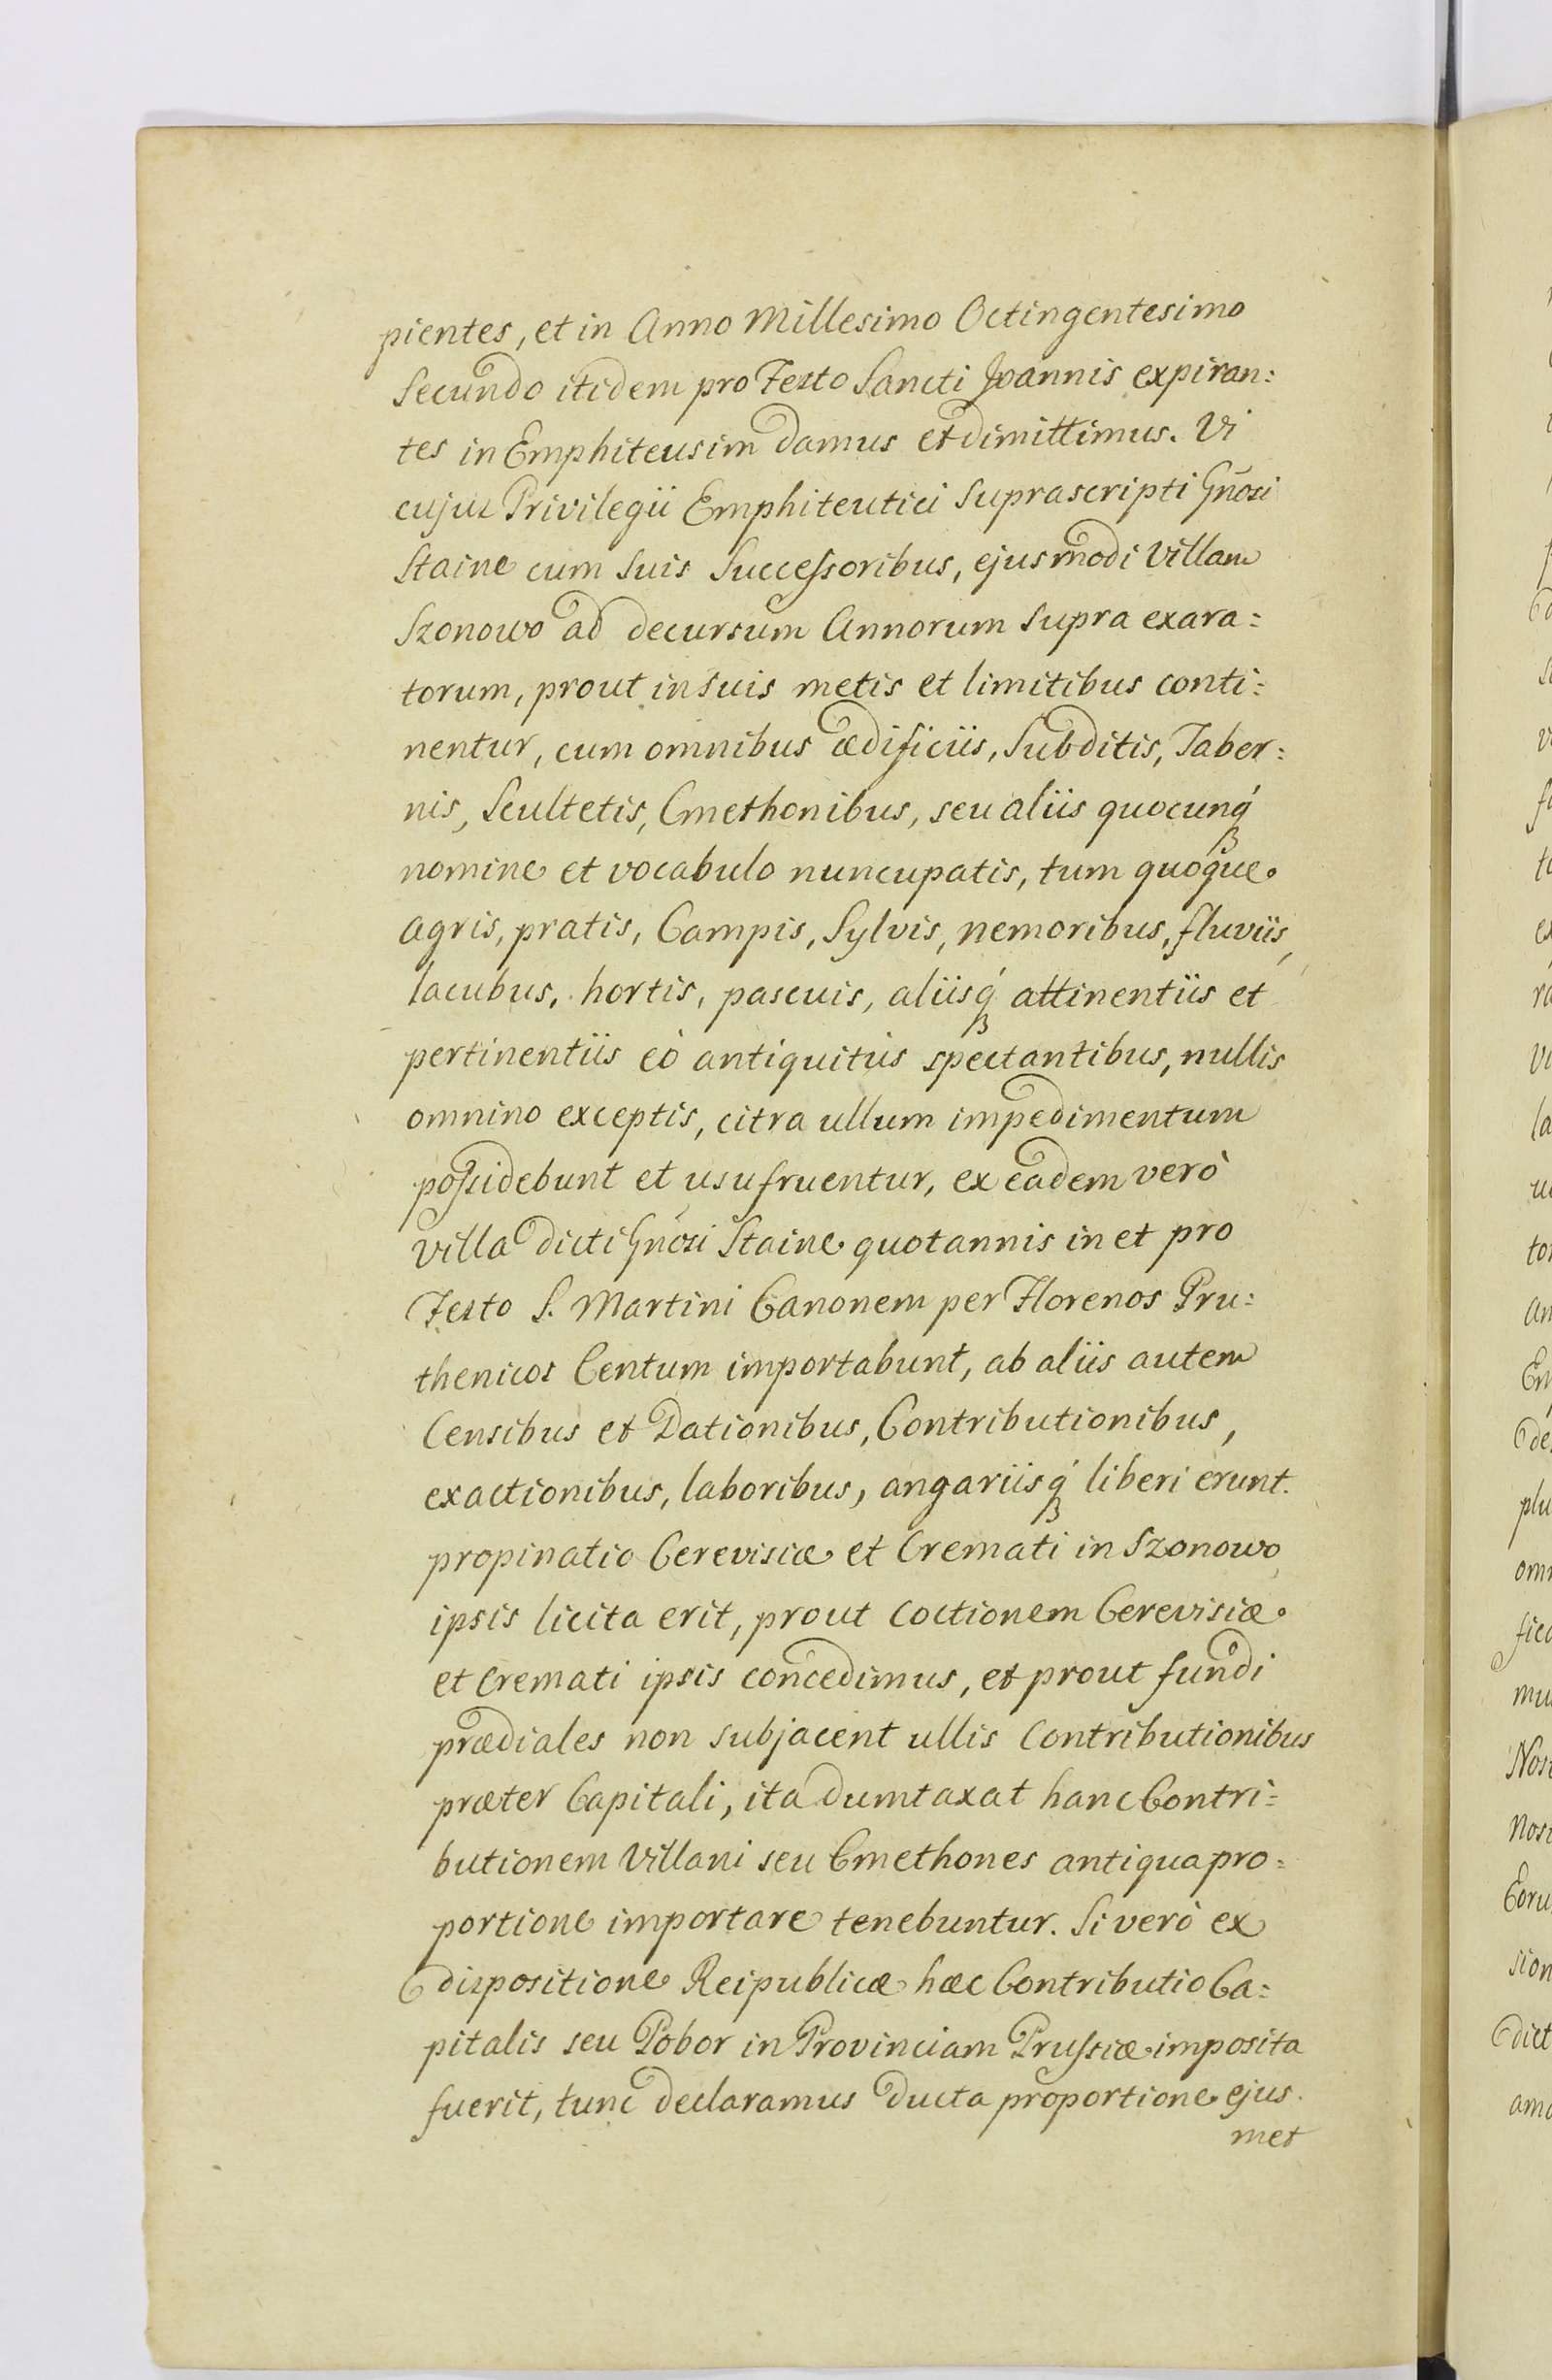 pientes, et in Anno Millesimo Octingentesimo
Secundo itidem pro Festo Sancti Joannis expiran:
tes in Emphiteusim damus et dimittimus. Vi
cujus Privilegii Emphiteutici Suprascripti Gñosi
Staine cum Suis Successoribus, ejusmodi Villam
Szonowo ad decursum Annorum Supra exara:
torum, prout in Suis metis et limitibus conti:
nentur, cum omnibus ædificiis, Subditis, Taber:
nis, Scultetis, Cmethonibus, seu aliis quocunq́ꝫ
nomine et vocabulo nuncupatis, tum quoque
agris, pratis, Campis, Sylvis, nemoribus, fluviis,
lacubus, hortis, pascuis, aliisq́ꝫ attinentiis et
pertinentiis eò antiquitùs spectantibus, nullis
omnino exceptis, citra ullum impedimentum
possidebunt et usufruentur, ex eadem verò
Villa dicti Gñosi Staine quotannis in et pro
Festo S. Martini Canonem per Florenos Pru:
thenicos Centum importabunt, ab aliis autem
Censibus et Dationibus, Contributionibus,
exactionibus, laboribus, angariisq́ꝫ liberi erunt.
propinatio Cerevisiæ et Cremati in Szonowo
ipsis licita erit, prout Coctionem Cerevisiæ
et Cremati ipsis concedimus, et prout fundi
prædiales non subjacent ullis Contributionibus
præter Capitali, ita dumtaxat hanc Contri:
butionem Villani seu Cmethones antiqua pro:
portione importare tenebuntur. Si verò ex
dispositione Reipublicæ hæc Contributio Ca:
pitalis seu Pobor in Provinciam Prussiæ imposita
fuerit, tunc declaramus ducta proportione ejus
met